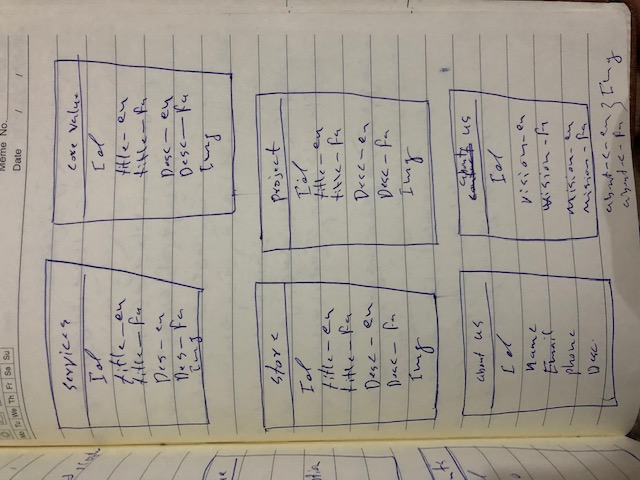 Meme No.
Mo Tu We Th Fr Sa Su
Date / /
services
Id
title_en
title_fa
Des_en
Des_fa
Img
core value
Id
title_en
title_fa
Desc_en
Desc_fa
Img
store
Id
title_en
title_fa
Desc_en
Desc_fa
Img
project
Id
title_en
title_fa
Desc_en
Desc_fa
Img
about us
Id
name
Email
phone
Desc.
about us
Id
vision_en
vision_fa
mision_en
mision_fa
about_c_en } Img
about_c_fa